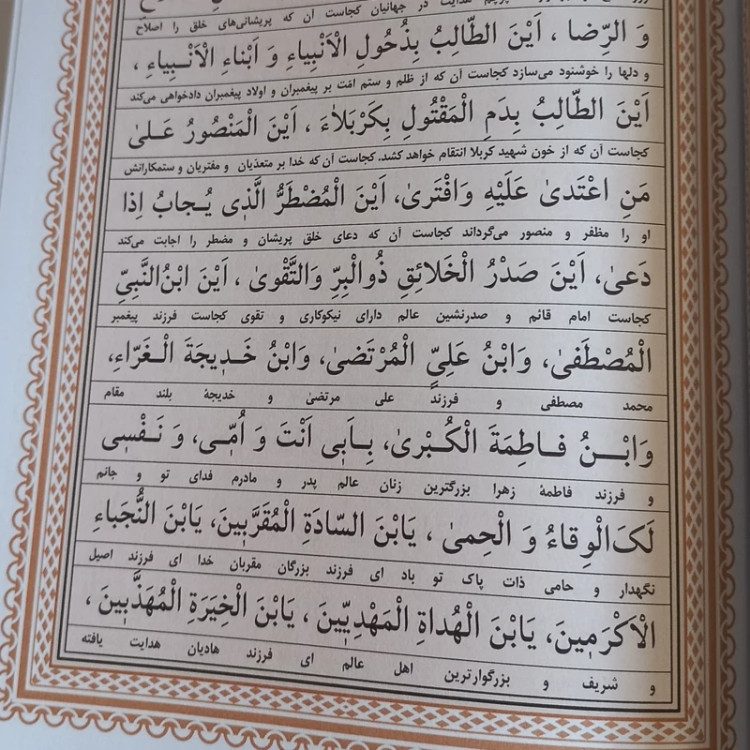 هدایت در جهانیان کجاست آن که پریشانی‌های خلق را اصلاح
وَ الرِّضا ، اَيْنَ الطّالِبُ بِذُحُولِ الْاَنْبِياءِ وَ اَبْناءِ الْاَنْبِياءِ ،
و دلها را خوشنود می‌سازد کجاست آن که از ظلم و ستم امّت بر پیغمبران و اولاد پیغمبران دادخواهی می‌کند
اَيْنَ الطّالِبُ بِدَمِ الْمَقْتُولِ بِكَرْبَلاءَ ، اَيْنَ الْمَنْصُورُ عَلىٰ
کجاست آن که از خون شهید کربلا انتقام خواهد کشد. کجاست آن که خدا بر متعدّیان و مفتریان و ستمکارانش
مَنِ اعْتَدىٰ عَلَيْهِ وَافْتَرىٰ، اَيْنَ الْمُضْطَرُّ الَّذي يُجابُ اِذا
او را مظفر و منصور می‌گرداند کجاست آن که دعای خلق پریشان و مضطر را اجابت می‌کند
دَعىٰ، اَيْنَ صَدْرُ الْخَلائِقِ ذُوالْبِرِّ وَالتَّقْوىٰ ، اَيْنَ ابْنُ النَّبِيِّ
کجاست امام قائم و صدرنشین عالم دارای نیکوکاری و تقوی کجاست فرزند پیغمبر
الْمُصْطَفىٰ، وَابْنُ عَلِيٍّ الْمُرْتَضىٰ، وَابْنُ خَديجَةَ الْغَرّاءِ،
محمد مصطفی و فرزند علی مرتضیٰ و خدیجهٔ بلند مقام
وَابْنُ فاطِمَةَ الْكُبْرىٰ، بِاَبي اَنْتَ وَ اُمّي، وَ نَفْسي
و فرزند فاطمهٔ زهرا بزرگترین زنان عالم پدر و مادرم فدای تو و جانم
لَكَ الْوِقاءُ وَ الْحِمىٰ ، يَابْنَ السّادَةِ الْمُقَرَّبينَ، يَابْنَ النُّجَباءِ
نگهدار و حامی ذات پاک تو باد ای فرزند بزرگان مقربان خدا ای فرزند اصیل
الْاَكْرَمينَ، يَابْنَ الْهُداةِ الْمَهْدِيّينَ ، يَابْنَ الْخِيَرَةِ الْمُهَذَّبينَ ،
و شریف و بزرگوارترین اهل عالم ای فرزند هادیان هدایت یافته